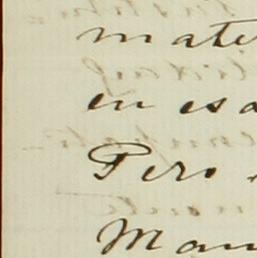 mate
en esa
Pero
Man